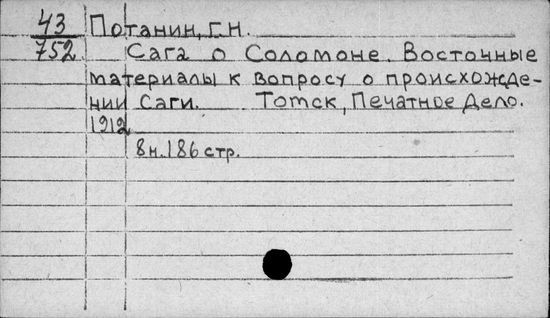 43 Потанин, Г.Н.
752 Сага о Соломоне. Восточные
материалы к вопросу о происхожде-
нии Саги. Томск, Печатное Дело.
1912
8н.186 стр.